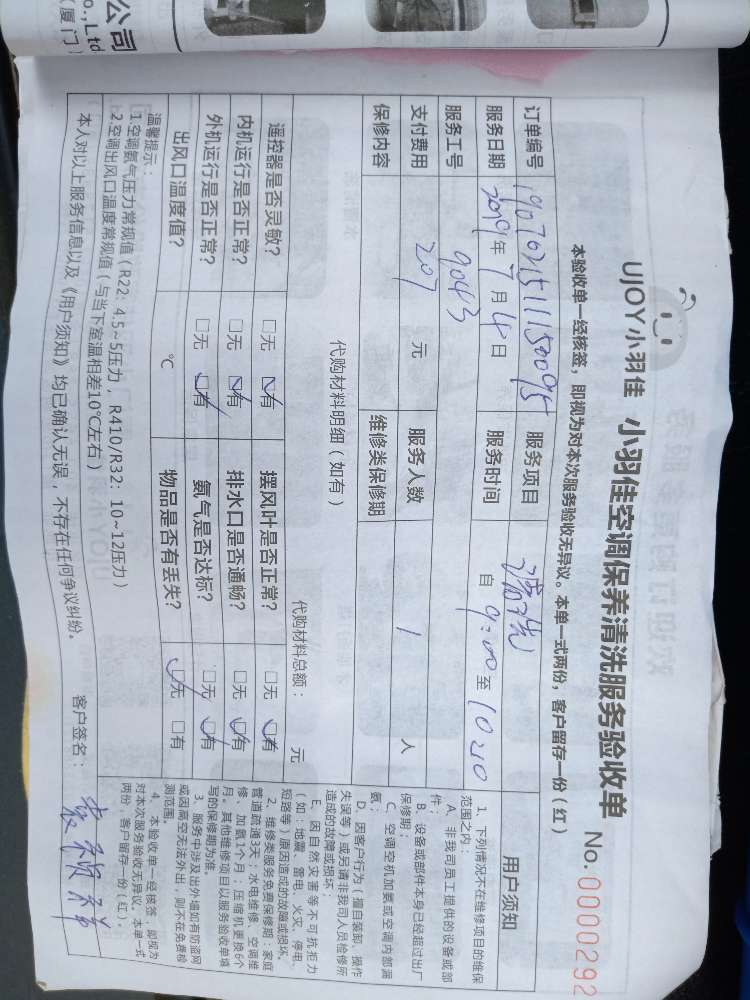 公司
o.,Ltd
(厦门)
UJOY小羽佳 小羽佳空调保养清洗服务验收单
No.0000292
本验收单一经核签，即视为对本次服务验收无异议。本单一式两份，客户留存一份（红）
订单编号 1907021511150095 服务项目 清洗
服务日期 2019年7月4日 服务时间 自 9:00至 10:10
服务工号 9043
支付费用 207 元 服务人数 1 人
保修内容 维修类保修期
代购材料明细（如有） 代购材料总额： 元
遥控器是否灵敏？ □无 □有 摆风叶是否正常？ □无 □有
内机运行是否正常？ □无 □有 排水口是否通畅？ □无 □有
外机运行是否正常？ □无 □有 氨气是否达标？ □无 □有
出风口温度值？ ℃ 物品是否有丢失？ □无 □有
温馨提示：
1.空调氨气压力常规值（R22：4.5~5压力，R410/R32：10~12压力）
2.空调出风口温度常规值（与当下室温相差10℃左右）
本人对以上服务信息以及《用户须知》均已确认无误，不存在任何争议纠纷。 客户签名：
用户须知
1、下列情况不在维修项目的维保
范围之内：
A、非我司员工提供的设备或部
件；
B、设备或部件本身已经超过出厂
保修期；
C、空调空机加氨或空调内部漏
氨；
D、因客户行为（擅自装卸、操作
失误等）或另请非我司人员检修所
造成的故障或损坏；
E、因自然灾害等不可抗拒力
（如：地震、雷电、火灾、停电、
短路等）原因造成的故障或损坏。
2、维修类服务免费保修期：家庭
管道疏通3天；水电维修、空调维
修、加氨1个月；压缩机更换6个
月。其他维修项目以服务验收单填
写的保修期为准。
3、服务中涉及出外墙如有防盗网
或因高空无法外出，则不在免费检
测范围。
4、本验收单一经核签，即视为
对本次服务验收无异议。本单一式
两份，客户留存一份（红）。